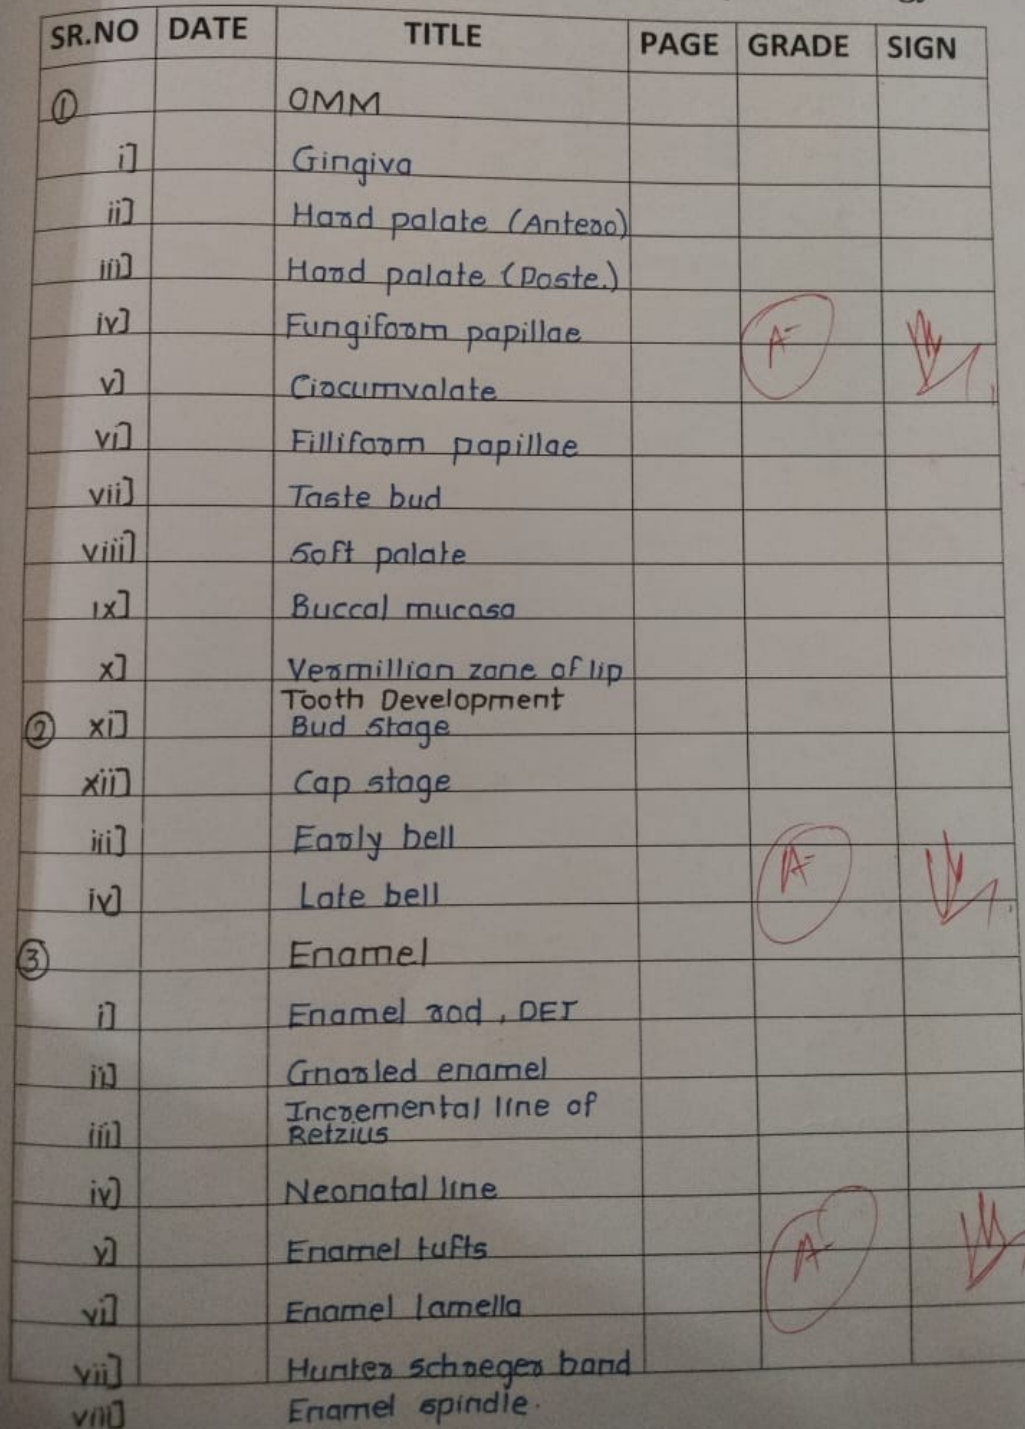 SR.NO DATE TITLE PAGE GRADE SIGN
① OMM
i] Gingiva
ii] Hard palate (Antero)
iii] Hard palate (Poste.)
iv] Fungiform papillae A-
v] Circumvalate
vi] Filliform papillae
vii] Taste bud
viii] Soft palate
ix] Buccal mucosa
x] Vermillian zone of lip
Tooth Development
② xi] Bud stage
xii] Cap stage
iii] Early bell A-
iv] Late bell
③ Enamel
i] Enamel rod, DEJ
ii] Gnarled enamel
Incremental line of
iii] Retzius
iv] Neonatal line
v] Enamel tufts A-
vi] Enamel lamella
vii] Hunter schreger band
viii] Enamel spindle.